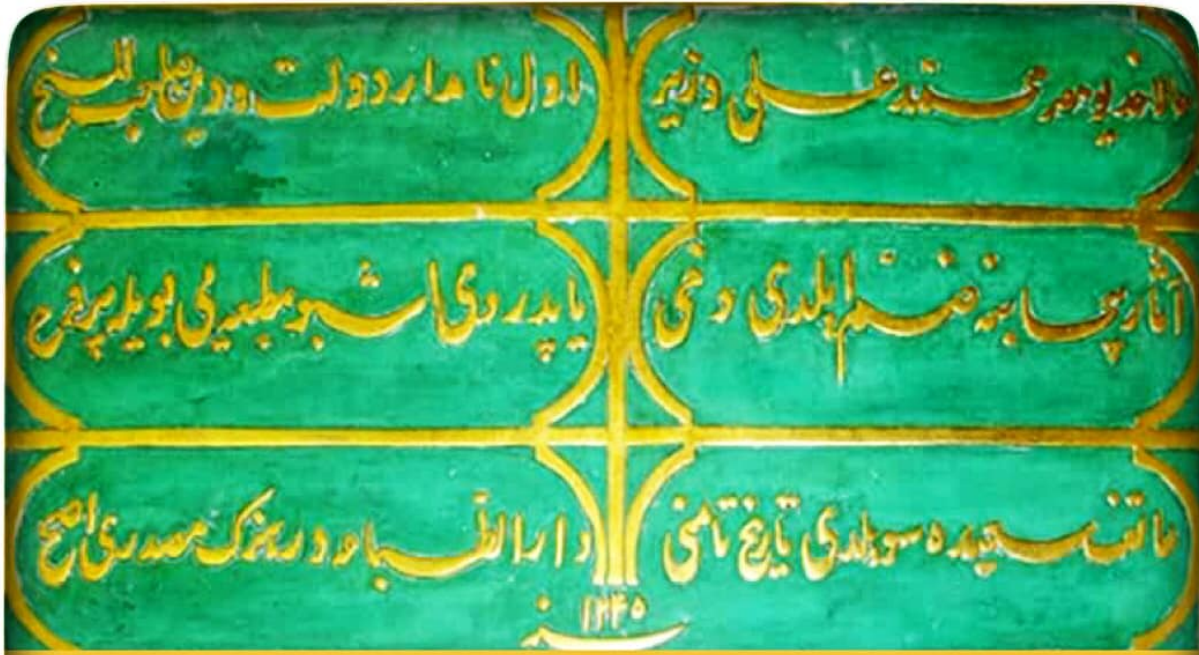 حالا خديو مصر محمد علی وزير
اول نامدار دولت ودين صاحب المنح
آثار بيحسابنه ضم ايلدی دخی
ياپدردی اشبو مطبعه يی بويله پر فرح
هاتف سعيده سويلدی تاريخ تامنی
دار الطباعه در هنرك مصدری اصح
سنه ١٢٣٥